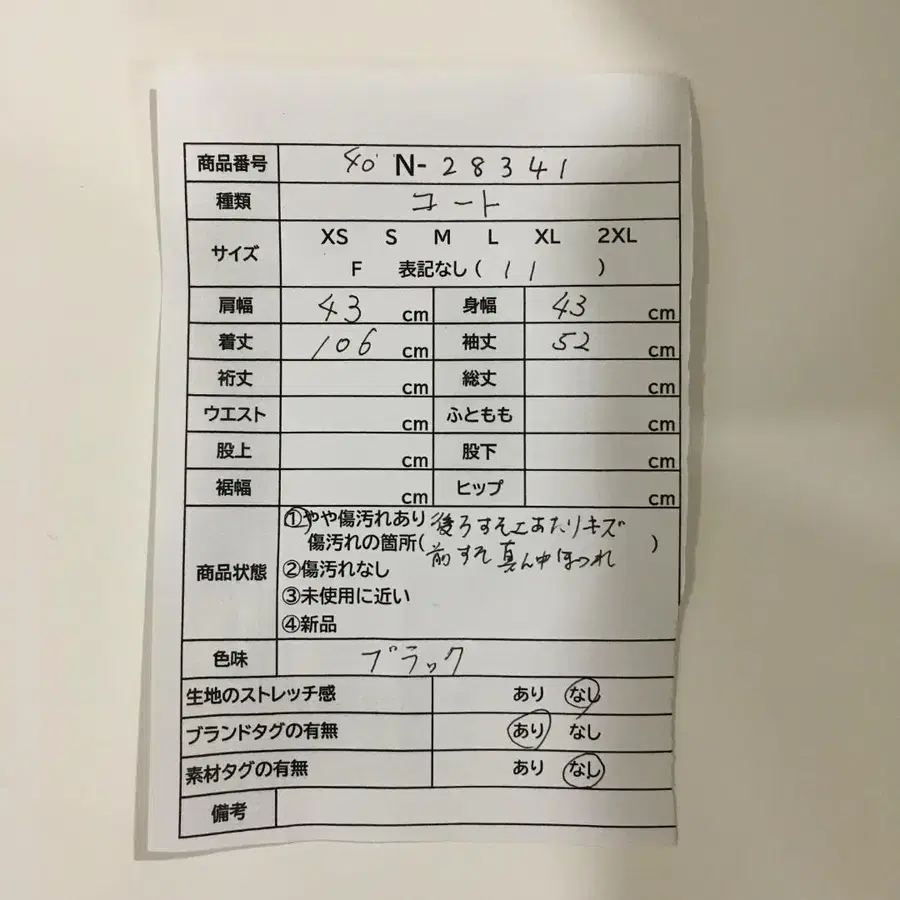 商品番号 40 N-28341
種類 コート
サイズ XS S M L XL 2XL
F 表記なし ( 11 )
肩幅 43 cm 身幅 43 cm
着丈 106 cm 袖丈 52 cm
裄丈 cm 総丈 cm
ウエスト cm ふともも cm
股上 cm 股下 cm
裾幅 cm ヒップ cm
商品状態
①やや傷汚れあり 後ろすそ上あたりキズ
傷汚れの箇所( 前すそ真ん中ほつれ )
②傷汚れなし
③未使用に近い
④新品
色味 ブラック
生地のストレッチ感 あり なし
ブランドタグの有無 あり なし
素材タグの有無 あり なし
備考